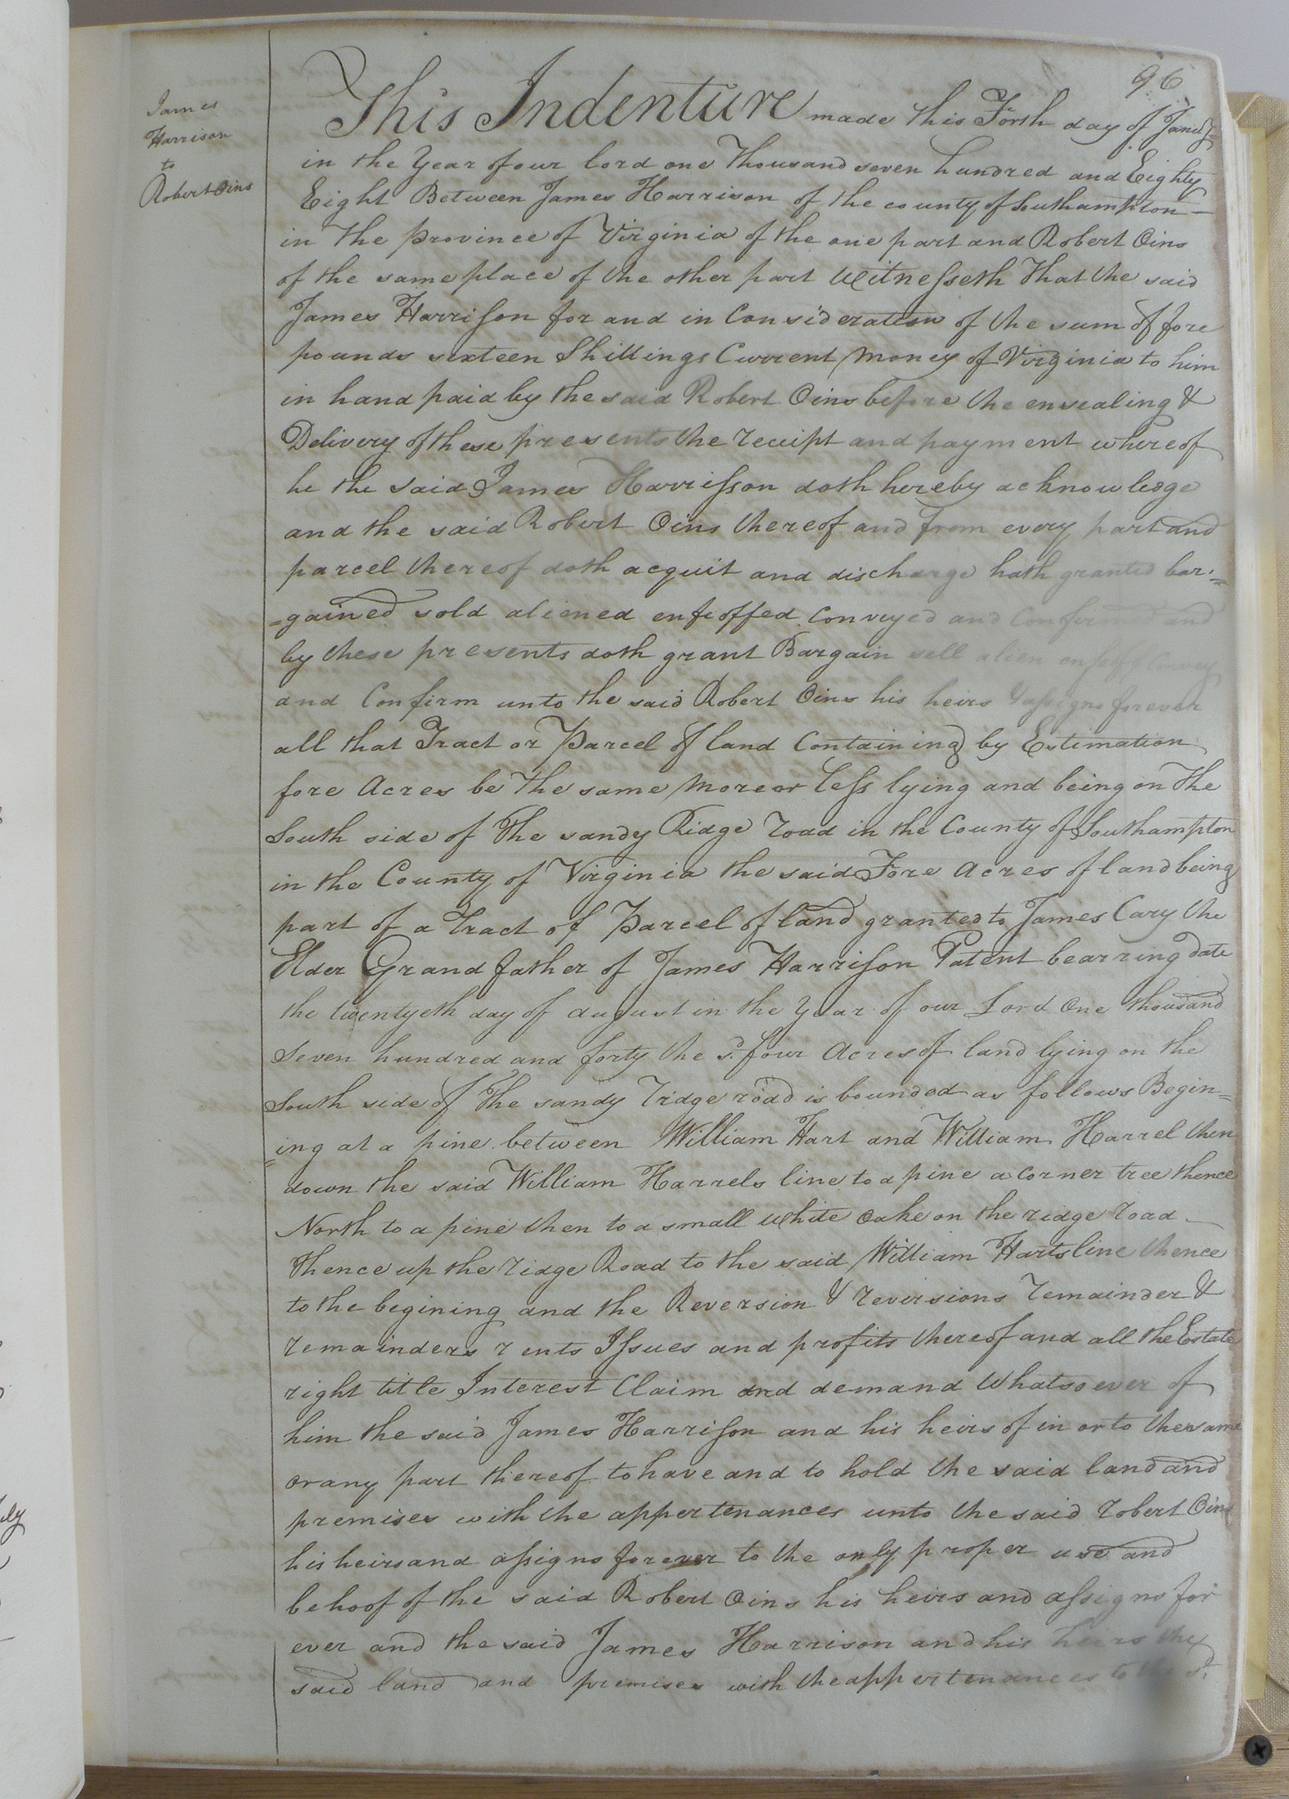 96
James
Harrison
to
Robert Oins
This Indenture made this Forth day of Janry=
in the Year of our lord one Thousand seven hundred and Eighty
Eight Between James Harrison of the county of Southampton—
in the province of Virginia of the one part and Robert Oins
of the same place of the other part witnesseth that the said
James Harrisson for and in Consideration of the sum of fore
pounds sixteen Shillings Current Money of Virginia to him
in hand paid by the said Robert Oins before the ensealing &
Delivery of these presents the receipt and payment whereof
he the said James Harrisson doth hereby acknowledge
and the said Robert Oins thereof and from every part and
parcel thereof doth acquit and discharge hath granted bar=
=gained sold aliened enfeoffed Conveyed and Confirmed and
by these presents doth grant Bargain sell alien enfeoff Convey
and Confirm unto the said Robert Oins his heirs & assigns forever
all that Tract or Parcel of land Containing by Estimation
fore Acres be the same more or less lying and being on the
South side of the sandy Ridge road in the County of Southampton
in the County of Virginia the said Fore Acres of land being
part of a tract of Parcel of land granted to James Cary the
Elder Grand father of James Harrisson Patent bearring date
the twentyeth day of august in the Year of our Lord One thousand
Seven hundred and forty the sd. four Acres of land lying on the
South side of the sandy ridge road is bounded as follows Begin=
=ing at a pine between William Hart and William Harrel then
down the said William Harrels line to a pine a corner tree thence
North to a pine then to a small white oake on the ridge road —
thence up the ridge Road to the said William Harts line thence
to the begining and the Reversion & reversions remainder &
remainders rents Issues and profits thereof and all the Estate
right title Interest Claim and demand whatsoever of
him the said James Harrisson and his heirs of in or to the same
or any part thereof to have and to hold the said land and
premises with the appertenances unto the said robert Oins
his heirs and assigns forever to the only proper use and
behoof of the said Robert Oins his heirs and assigns for
ever and the said James Harrison and his heirs the
said land and premises with the appertenances to the sd.